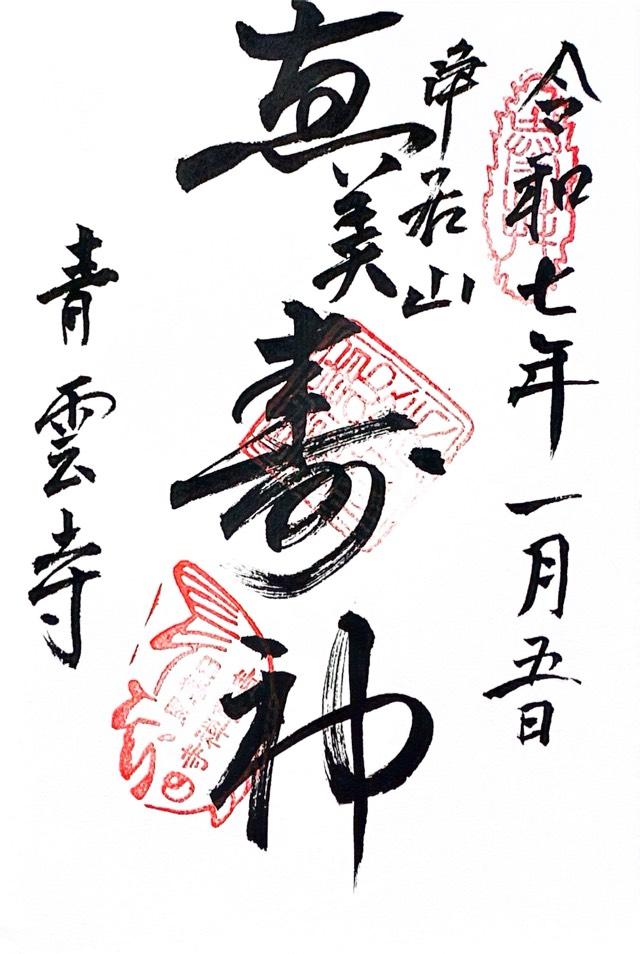 令和七年一月五日
浄居山
恵美寿神
青雲寺